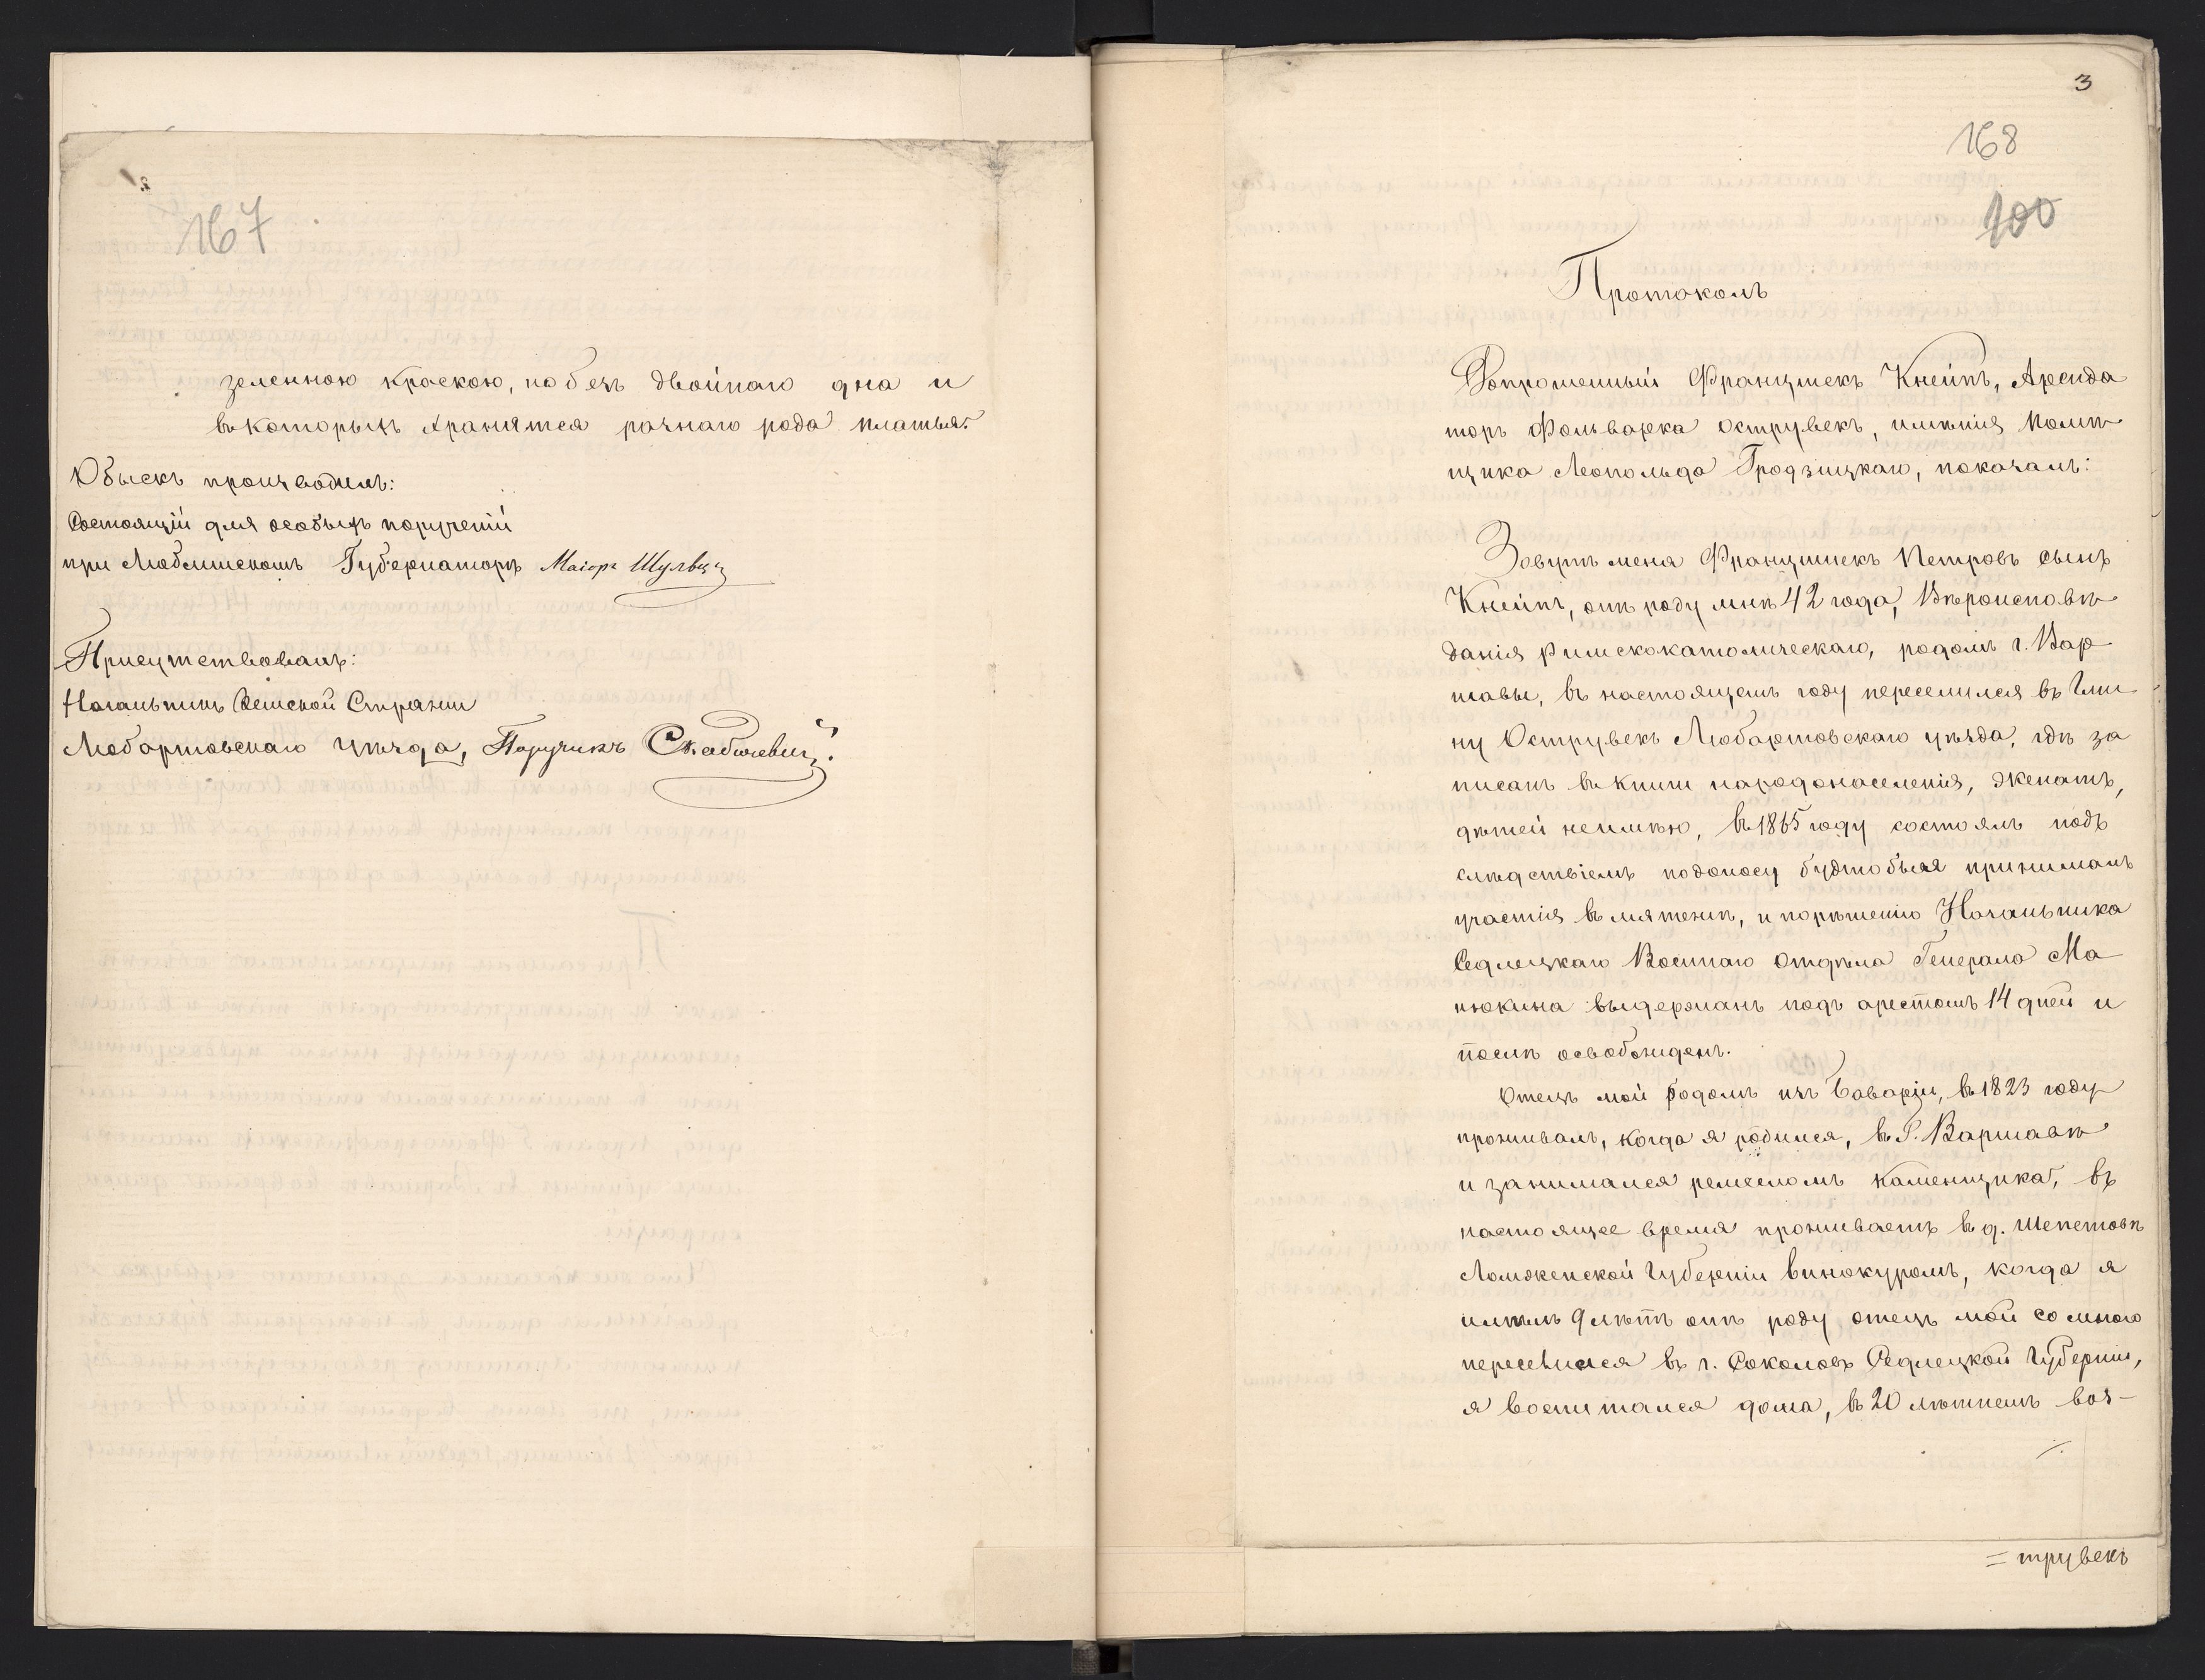 167
зеленною краскою, но безъ двойнаго дна и
въ которыхъ хранятся разнаго рода платья.
Обыскъ производилъ:
Состоящій для особыхъ порученій
при Люблинскомъ Губернаторѣ Маіоръ Шульцъ
Присутствовалъ:
Начальникъ Земской Стражи
Любартовскаго уѣзда, Поручикъ
3
168
100
Протоколъ
Вопрошенный Францишекъ Кнейпъ, Аренда
торъ Фольварка Острувекъ, имѣнія помѣ
щика Леопольда Гродзицкаго, показалъ:
Зовутъ меня Францишекъ Петровъ сынъ
Кнейпъ, отъ роду мнѣ 42 года, Вѣроисповѣ
данія Римскокатолическаго, родомъ г. Вар
шавы, въ настоящемъ году переселился въ Гми
ну Острувекъ Любартовскаго уѣзда, гдѣ за
писанъ въ книги народонаселенія, женатъ,
дѣтей неимѣю, въ 1865 году состоялъ подъ
слѣдствіемъ подоносу будтобы я принималъ
участія въ мятежѣ, и порѣшенію Начальника
Седлецкаго Военнаго Отдѣла Генерала Ма
нюкина выдержанъ подъ арестомъ 14 дней и
послѣ освобожденъ.
Отецъ мой родомъ изъ Баваріи, въ 1823 году
проживалъ, когда я родился, въ Г. Варшавѣ
и занимался ремесломъ каменщика, въ
настоящее время проживаетъ въ д. Шепетовѣ
Ломженской Губерніи винокуромъ, когда я
имѣлъ 9 лѣтъ отъ роду отецъ мой со мною
переселился въ г. Соколовъ Седлецкой Губерніи,
я воспитался дома, въ 20 лѣтнемъ воз-
./.
= трувекъ